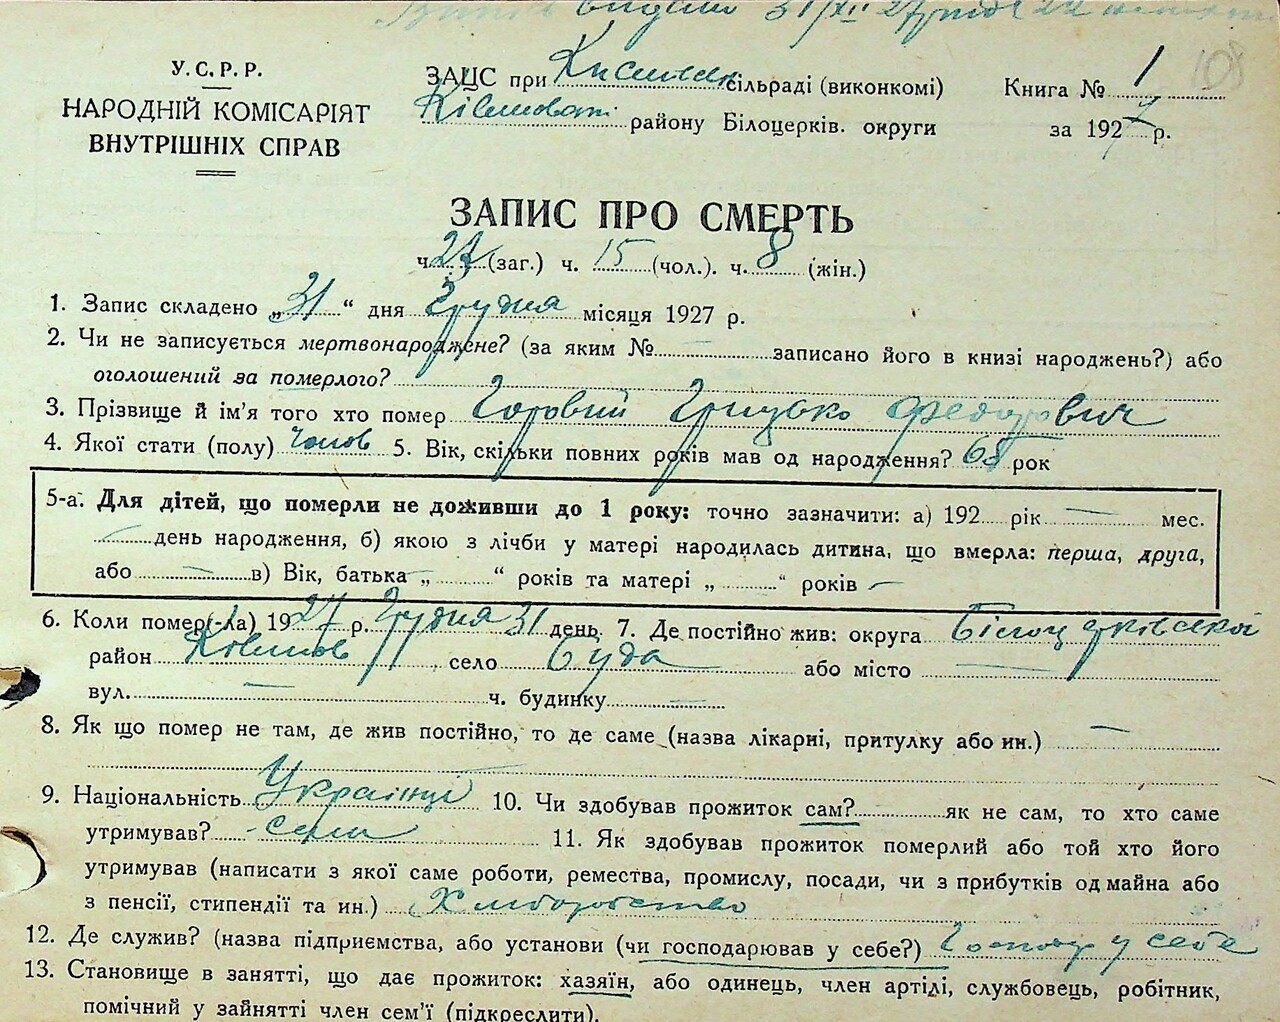 видано 31/XII 27 р.
У.С.Р.Р.
НАРОДНІЙ КОМІСАРІЯТ
ВНУТРІШНІХ СПРАВ
ЗАЦС при сільраді (виконкомі)
району Білоцерків. округи
Книга № 1 108
за 1927 р.
ЗАПИС ПРО СМЕРТЬ
ч. 23 (заг.) ч. 15 (чол.). ч. 8 (жін.)
1. Запис складено „31“ дня Грудня місяця 1927 р.
2. Чи не записується мертвонароджене? (за яким № — записано його в книзі народжень?) або
оголошений за померлого?
3. Прізвище й ім'я того хто помер Готовий Грицько Федорович
4. Якої стати (полу) чолов 5. Вік, скільки повних років мав од народження? 65 рок
5-а. Для дітей, що померли не доживши до 1 року: точно зазначити: а) 192 рік — мес.
— день народження, б) якою з лічби у матері народилась дитина, що вмерла: перша, друга,
або — в) Вік, батька „ — “ років та матері „ — “ років —
6. Коли помер(-ла) 1927 р. Грудня 31 день. 7. Де постійно жив: округа Білоцерківської
район село Буда або місто —
вул. — ч. будинку —
8. Як що помер не там, де жив постійно, то де саме (назва лікарні, притулку або ин.) —
9. Національність Українці 10. Чи здобував прожиток сам? як не сам, то хто саме
утримував? - сам 11. Як здобував прожиток померлий або той хто його
утримував (написати з якої саме роботи, ремества, промислу, посади, чи з прибутків од майна або
з пенсії, стипендії та ин.) Хліборобство
12. Де служив? (назва підприємства, або установи (чи господарював у себе?) Господар у себе
13. Становище в занятті, що дає прожиток: хазяїн, або одинець, член артілі, службовець, робітник,
помічний у зайнятті член сем'ї (підкреслити).